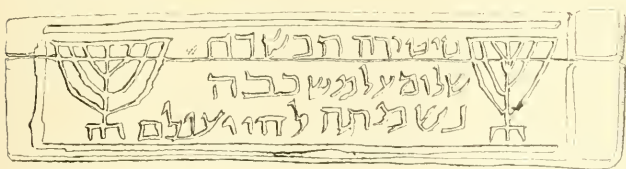 טיטירה
שלום על משכבה
נשמתה לחיי עולם